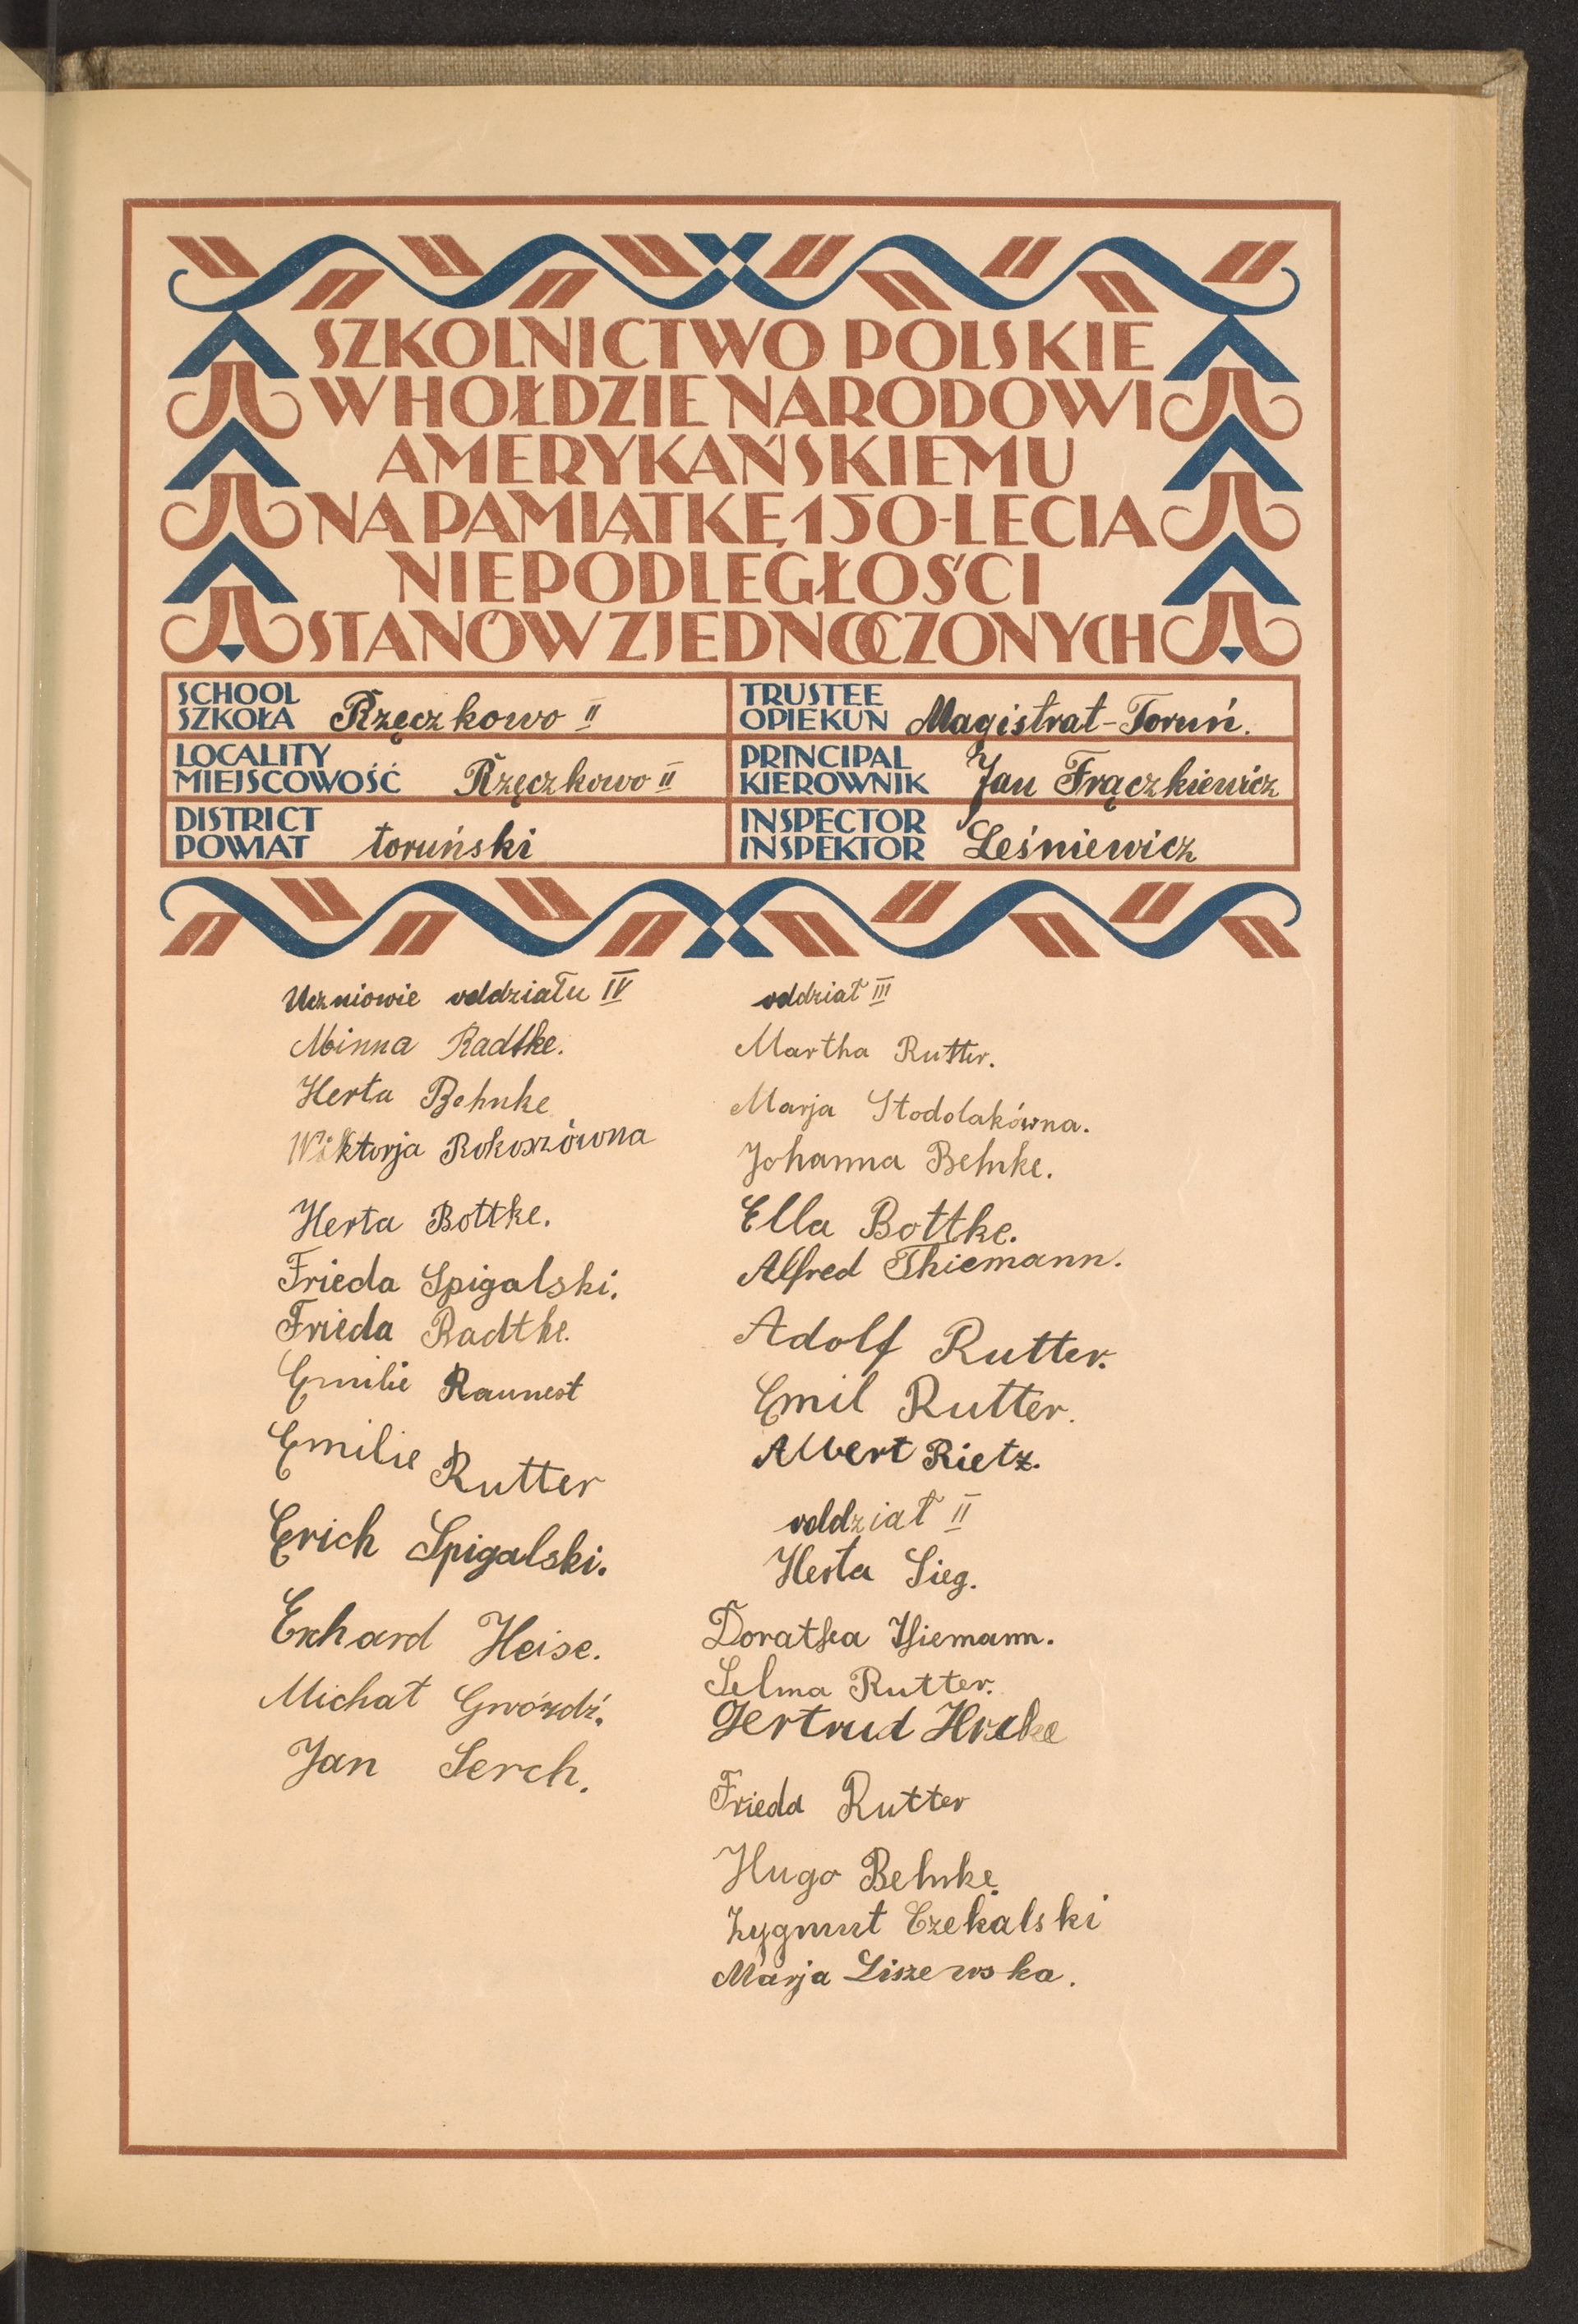 SZKOLNICTWO POLSKIE
W HOŁDZIE NARODOWI
AMERYKAŃSKIEMU
NA PAMIĄTKĘ 150-LECIA
NIEPODLEGŁOŚCI
STANÓW ZJEDNOCZONYCH
SCHOOL
SZKOŁA Rzęczkowo II
TRUSTEE
OPIEKUN Magistrat-Toruń.
LOCALITY
MIEJSCOWOŚĆ Rzęczkowo II
PRINCIPAL
KIEROWNIK Jan Frączkiewicz
DISTRICT
POWIAT toruński
INSPECTOR
INSPEKTOR Leśniewicz
Uczniowie oddziału IV
Minna Radtke.
Herta Behnke
Wiktorja Rokoszówna
Herta Bottke.
Frieda Spigalski.
Frieda Radtke.
Emilie Raunest
Emilie Rutter
Erich Spigalski.
Erhard Heise.
Michał Gwóźdź.
Jan Serch.
oddział III
Martha Rutter.
Marja Stodolakówna.
Johanna Behnke.
Ella Bottke.
Alfred Thiemann.
Adolf Rutter.
Emil Rutter.
Albert Rietz.
oddział II
Herta Sieg.
Dorathea Thiemann.
Selma Rutter.
Gertrud
Frieda Rutter
Hugo Behnke.
Zygmut Czekalski
Marja Liszewska.